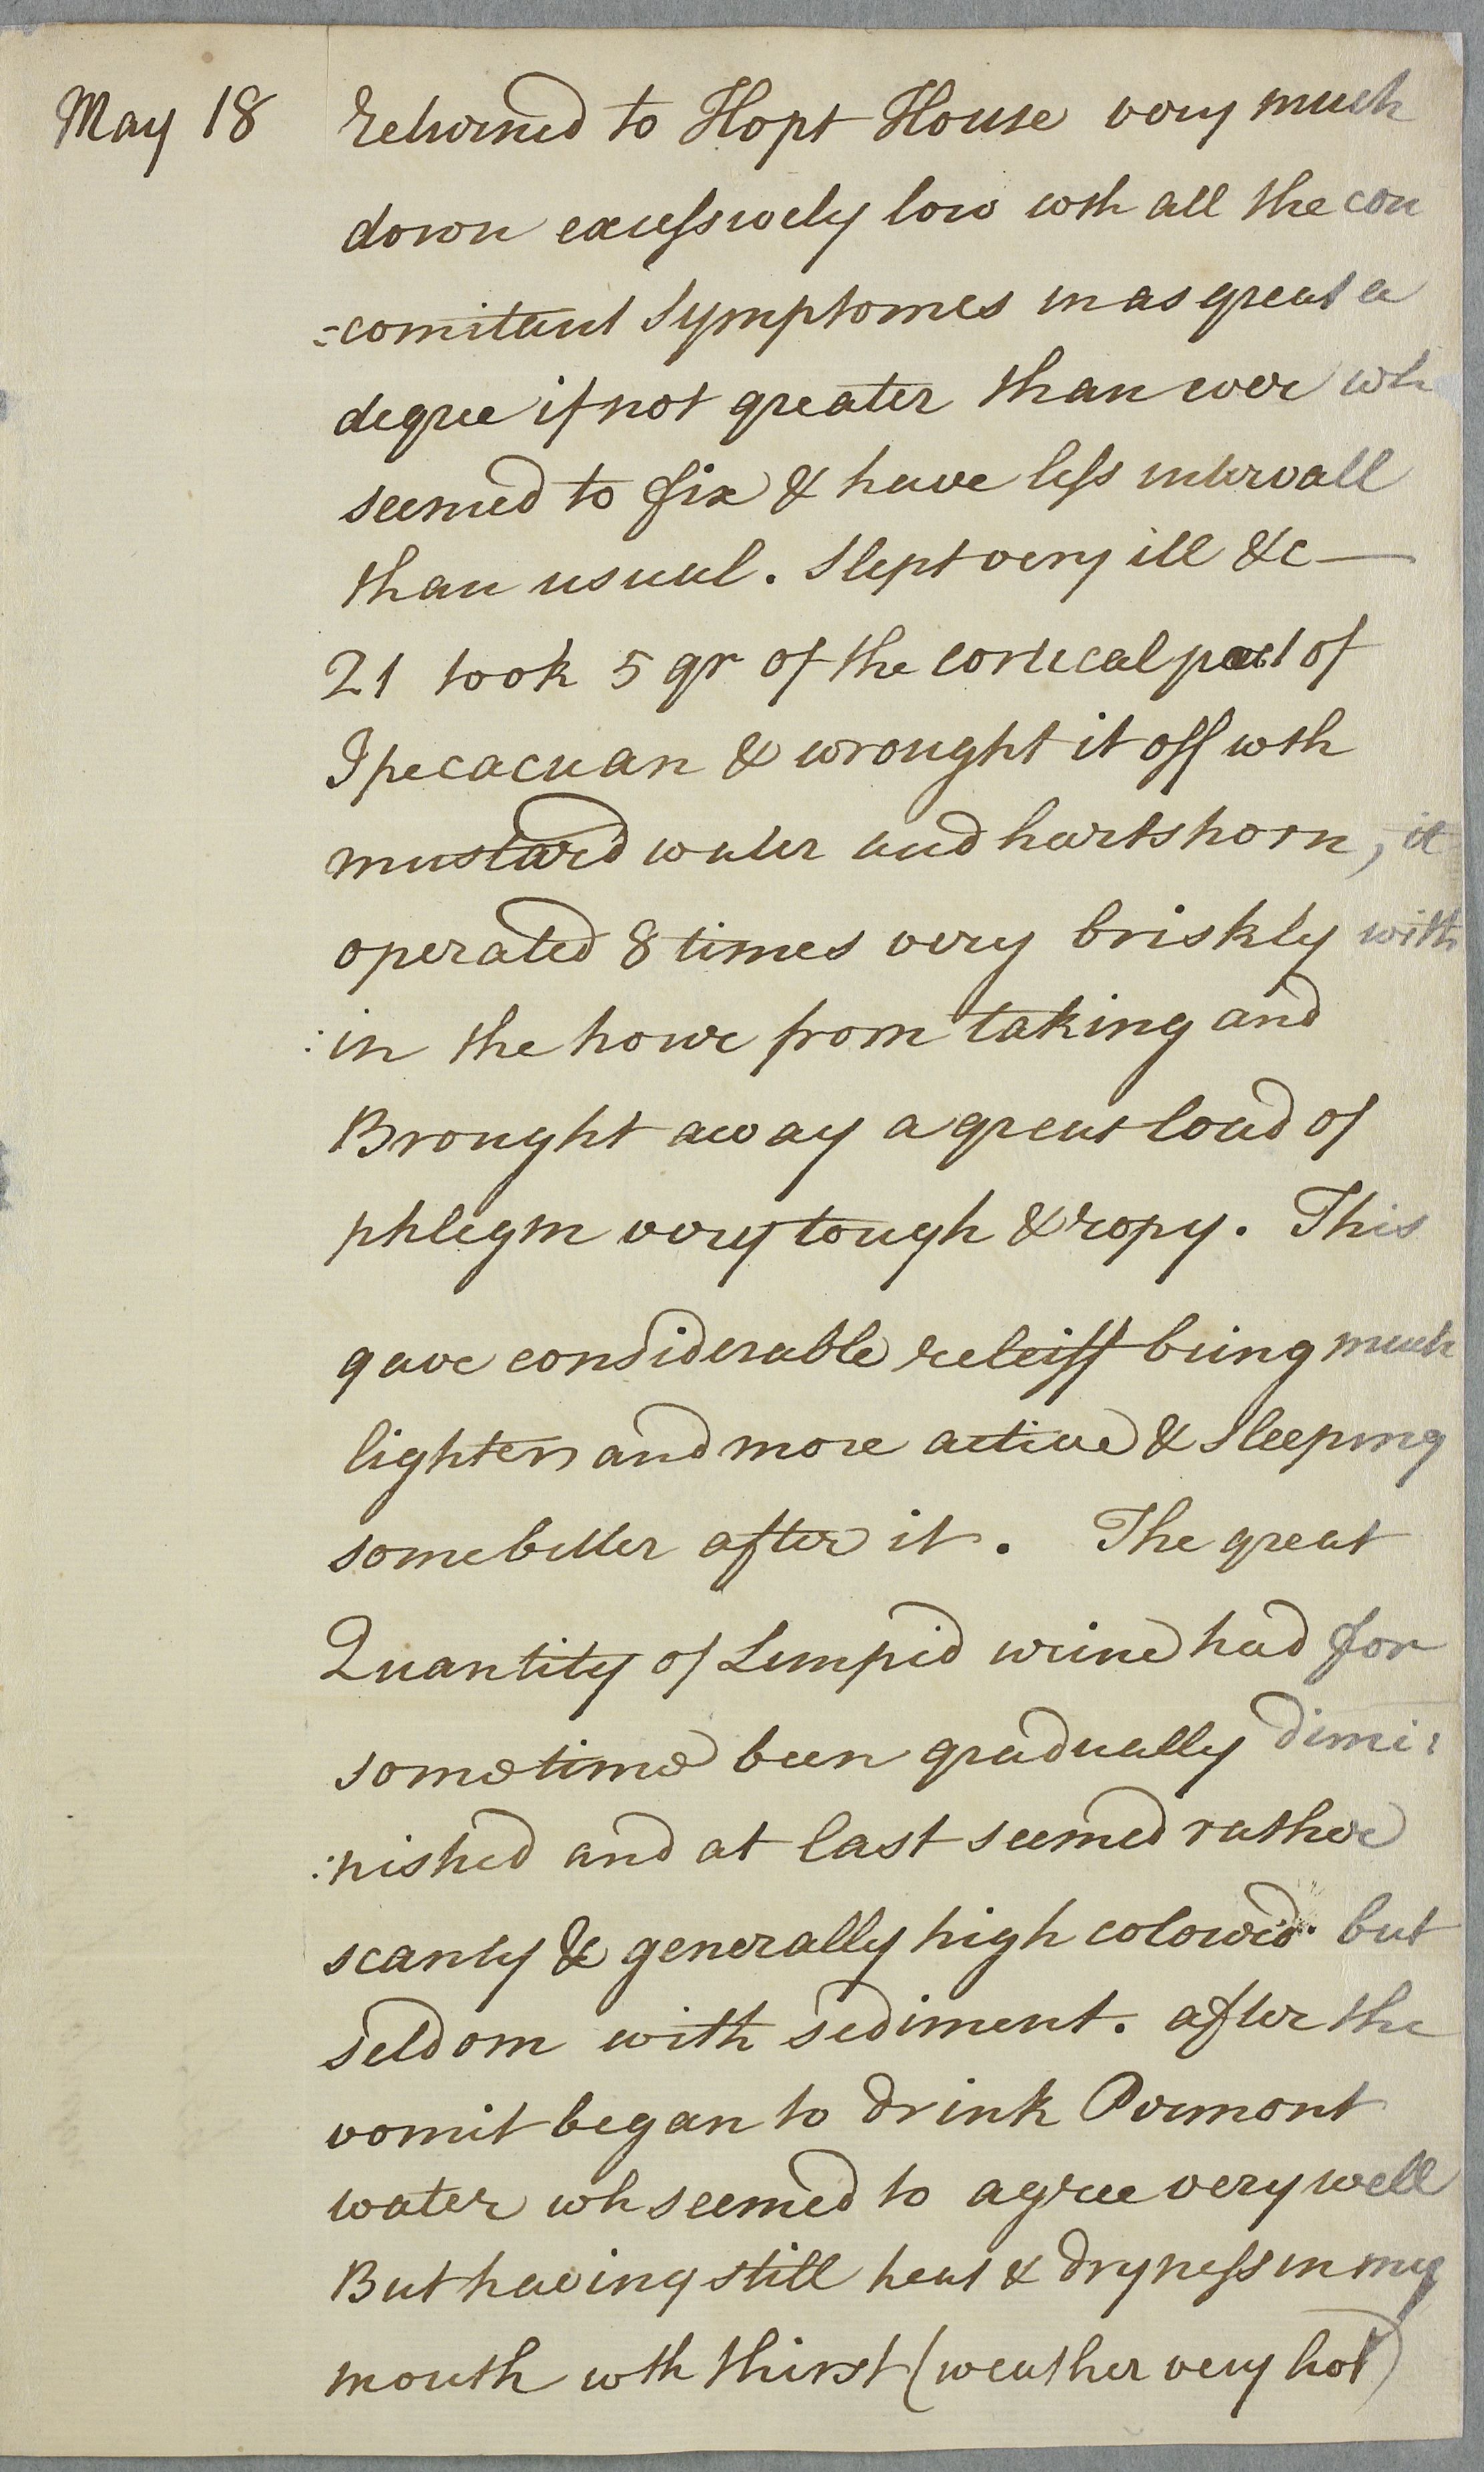 May 18 returned to Hopt House very much
down excessively low wth all the con
=comitant Symptomes in as great a
degree if not greater than ever wh
seemed to fix & have less intervall
than usual. Slept very ill &c—
21 took 5 gr of the cortical part of
Ipecacuan & wrought it off wth
mustard water and hartshorn, it
operated 8 times very briskly with
:in the houre from taking and
Brought away a great load of
phlegm very tough & ropy. This
gave considerable releiff being much
lighter and more active & sleeping
some better after it. The great
Quantity of Limpid urine had for
sometime been gradually dimi:
:nished and at last seemed rather
scanty & generally high coloured but
seldom with sediment. after the
vomit began to drink Pirmont
water wh seemed to agree very well
But having still heat & dryness in my
mouth wth thirst (weather very hot)